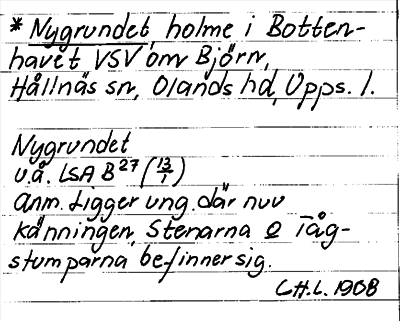 * Nygrundet, holme i Botten-
havet VSV om Björn,
Hållnäs sn, Olands hd, Upps. l.
Nygrundet
u.å. LSA B 27 (13/1)
Anm. Ligger ung. där nuv
känningen, Stenarna o Tåg-
stumparna befinner sig.
C.H.L. 1908